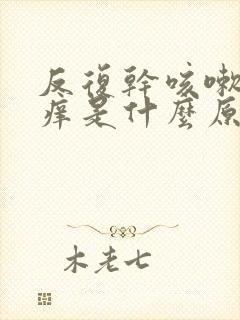 反復幹咳嗽
痒是什麼原
木老七